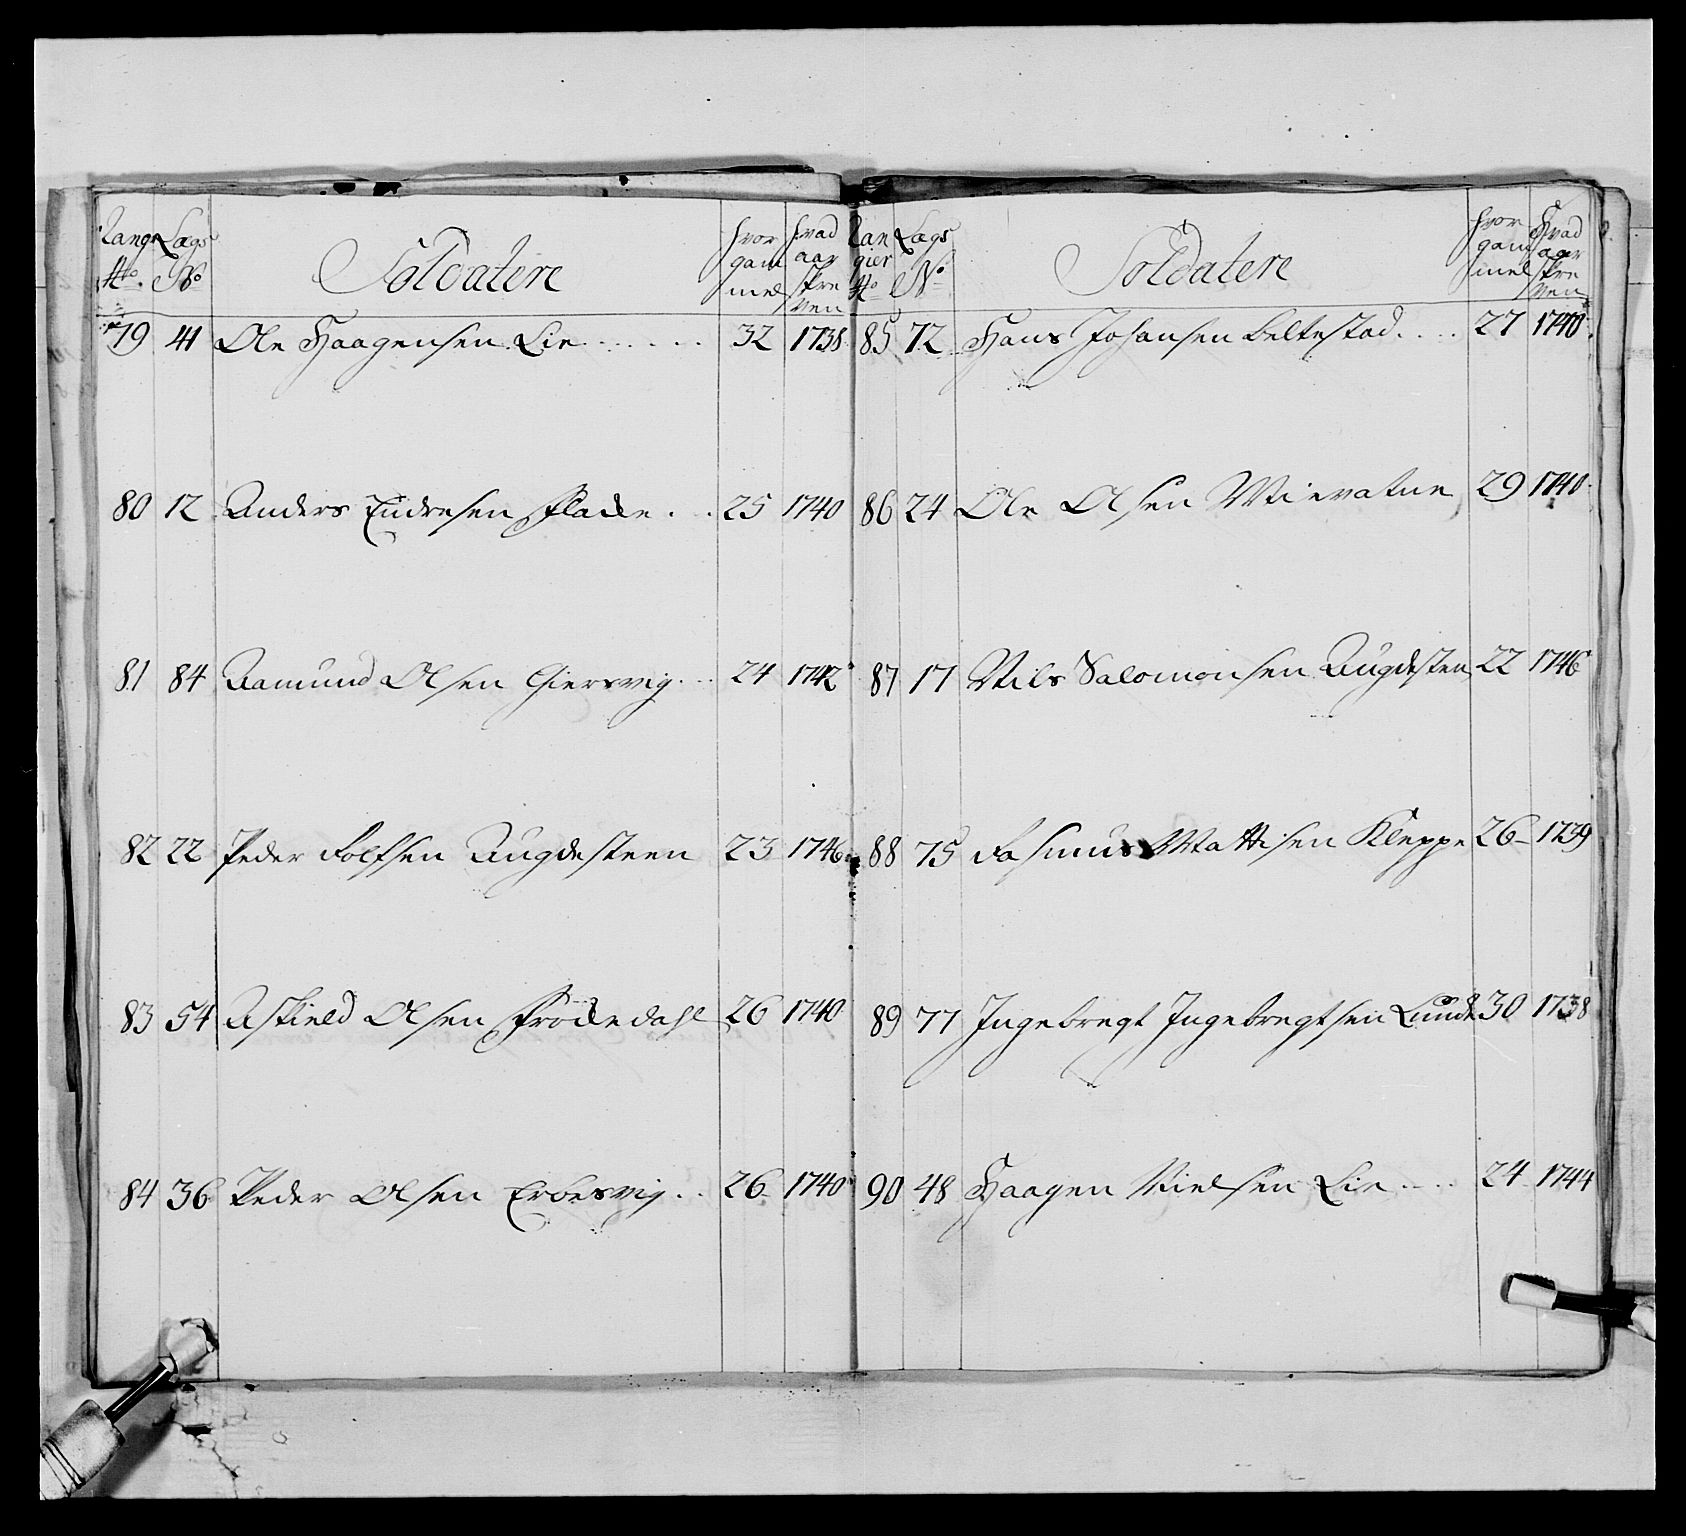 Rang Lægs
No. No Soldatere hvor gam mel hvad aar skre ven
79 41 Ole Haagensen Lie...... 32 1738
80 12 Anders Endresen Flade... 25 1740
81 84 Aamund Olsen Giersvig... 24 1742
82 22 Peder Rolfsen Augdesteen 23 1746
83 54 Askield Olsen Frødedahl 26 1740
84 36 Peder Olsen Erdesvig.. 26 1740
Ran gier No Lægs No Soldatere hvor gam mel Hvad aar skre ven
85 72 Hans Johansen Beltestad.... 27 1740
86 24 Ole Olsen Mievatne 29 1740
87 17 Nils Salomonsen Augdesten 22 1746
88 75 Rasmus Mattisen Kleppe 26 1739
89 77 Ingebregt Ingebregtsen Lunde 30 1738
90 48 Haagen Nielsen Lie.... 24 1744